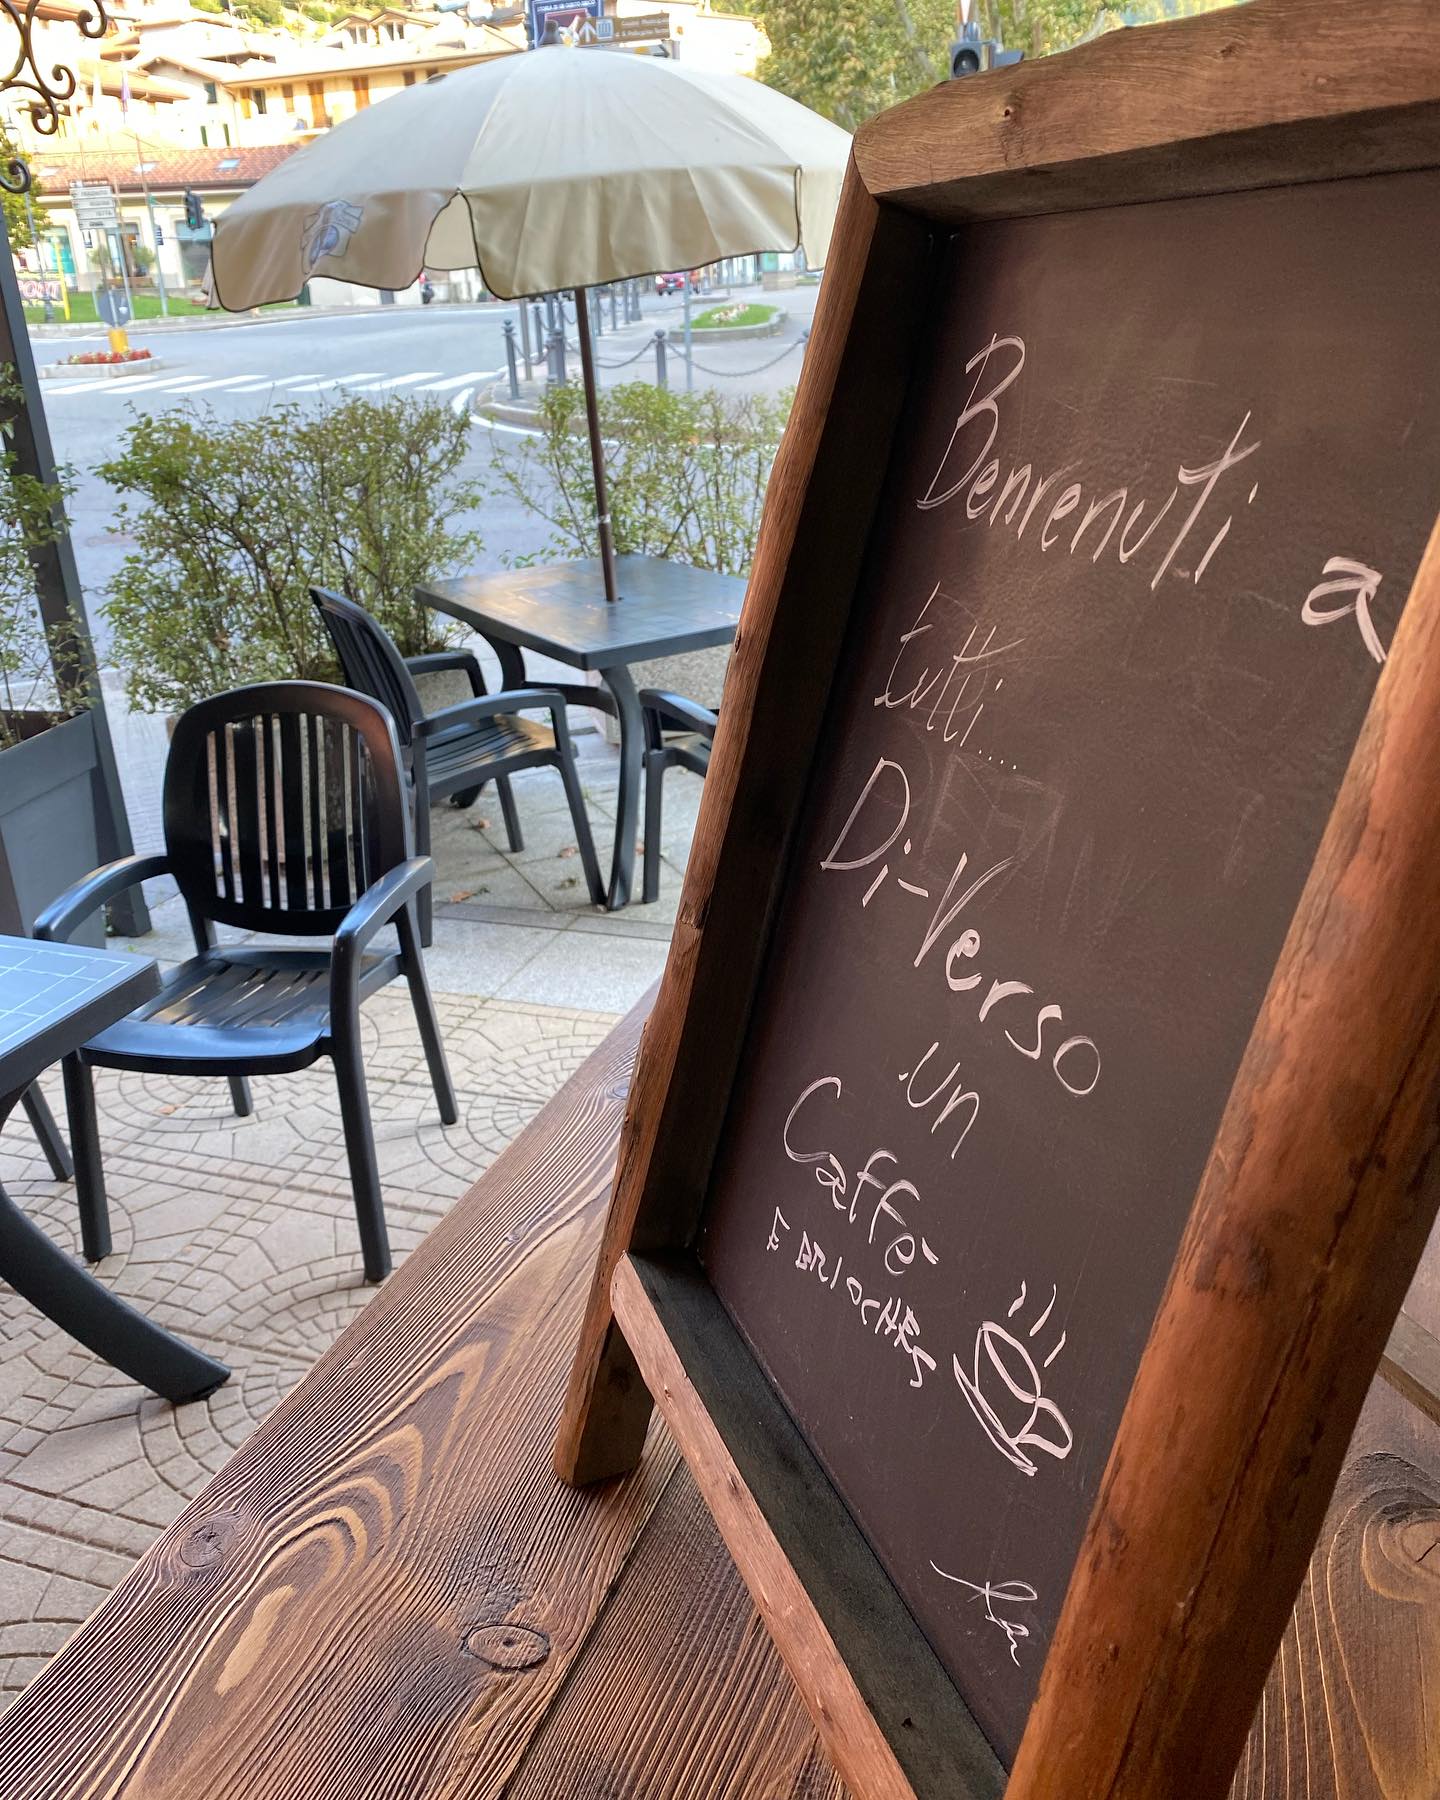 Benvenuti a
tutti....
Di-Verso
un
Caffè
E BRIOCHES